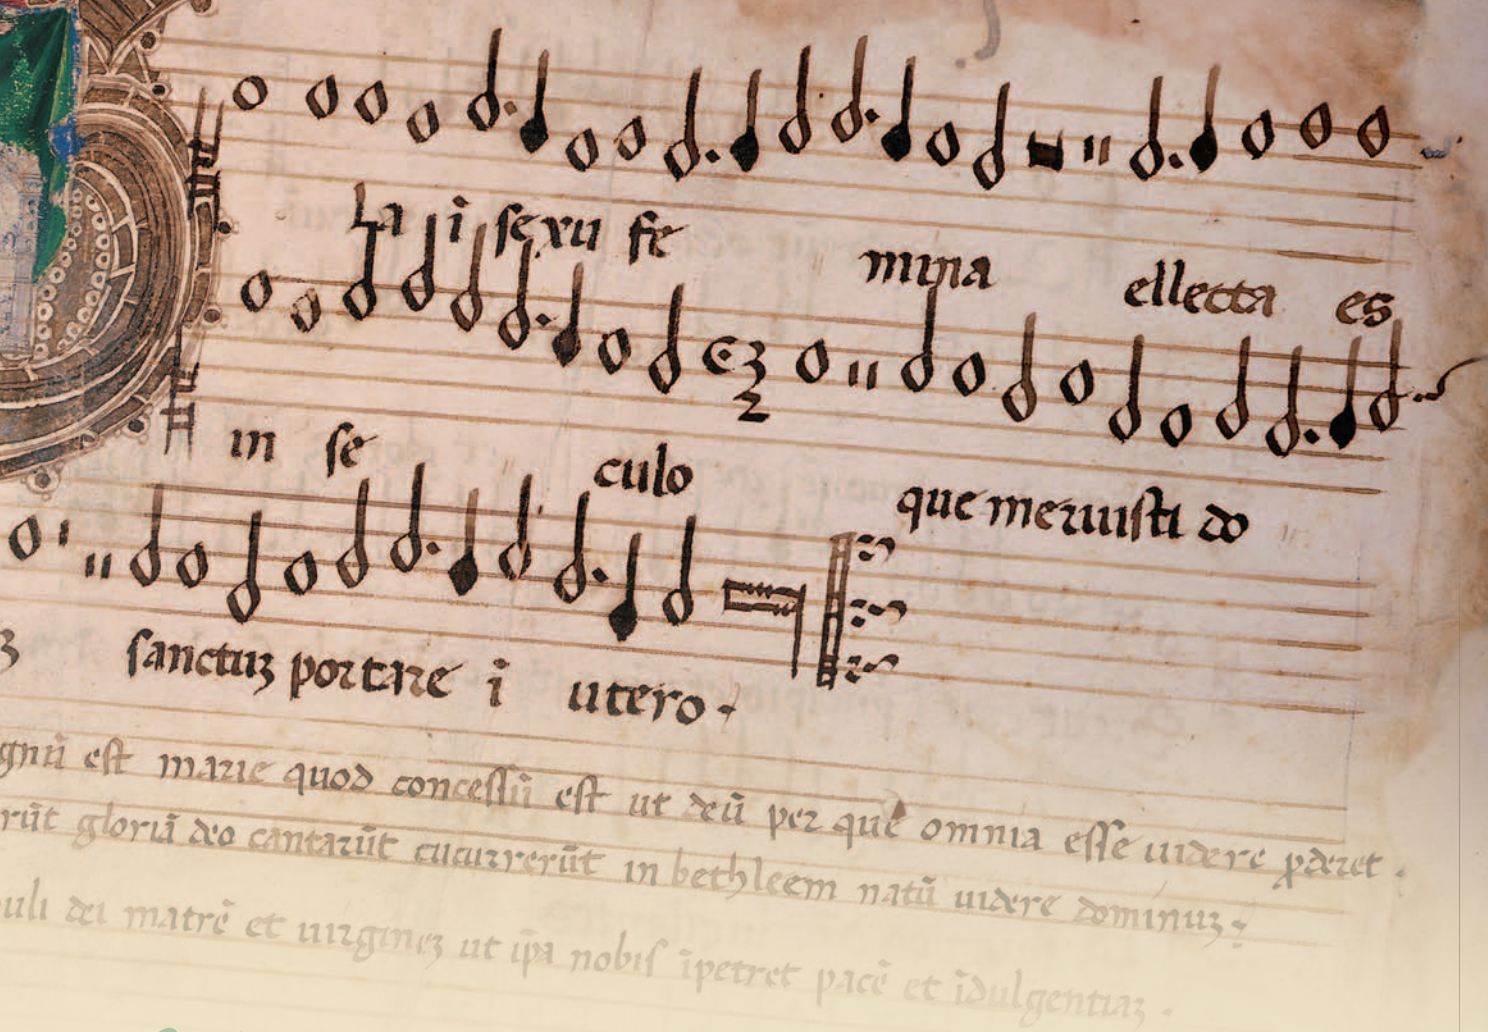 La ī sexu fe mina ellecta es
in se culo que meruisti do
sanctuʒ portare ī utero.
gnū est marie quod concessū est ut deū per quē omnia esse uidere ꝓderet.
rūt gloriā deo cantarūt cucurrerūt in bethleem natū uidere dominuʒ.
uli dei matrē et uirgineʒ ut ip̄a nobis īpetret pacē et īdulgentiaʒ.